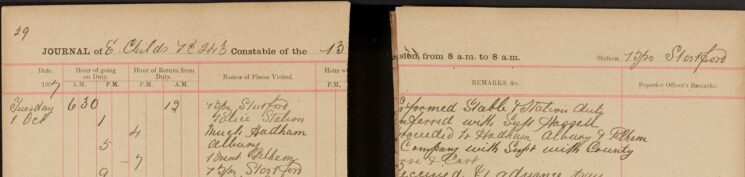 29
JOURNAL of E. Childs PC 243 Constable of the 13
Date. Hour of going on Duty. Hour of Return from Duty. Names of Places Visited.
190 A.M. P.M. A.M. P.M.
Tuesday 6 30 12 Stortford
1 Oct 1 Police Station
4 Much Hadham
5 Albury
7 Furneux Pelham
9 Stortford
from 8 a.m. to 8 a.m. Station Stortford
REMARKS, &c. Superior Officer's Remarks.
Stable & Station duty
with Supt
to Hadham Albury & Pelham
Company with Supt with County
& Cart
advance pay